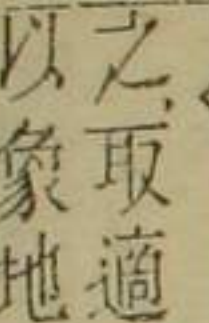 之取適
以象地